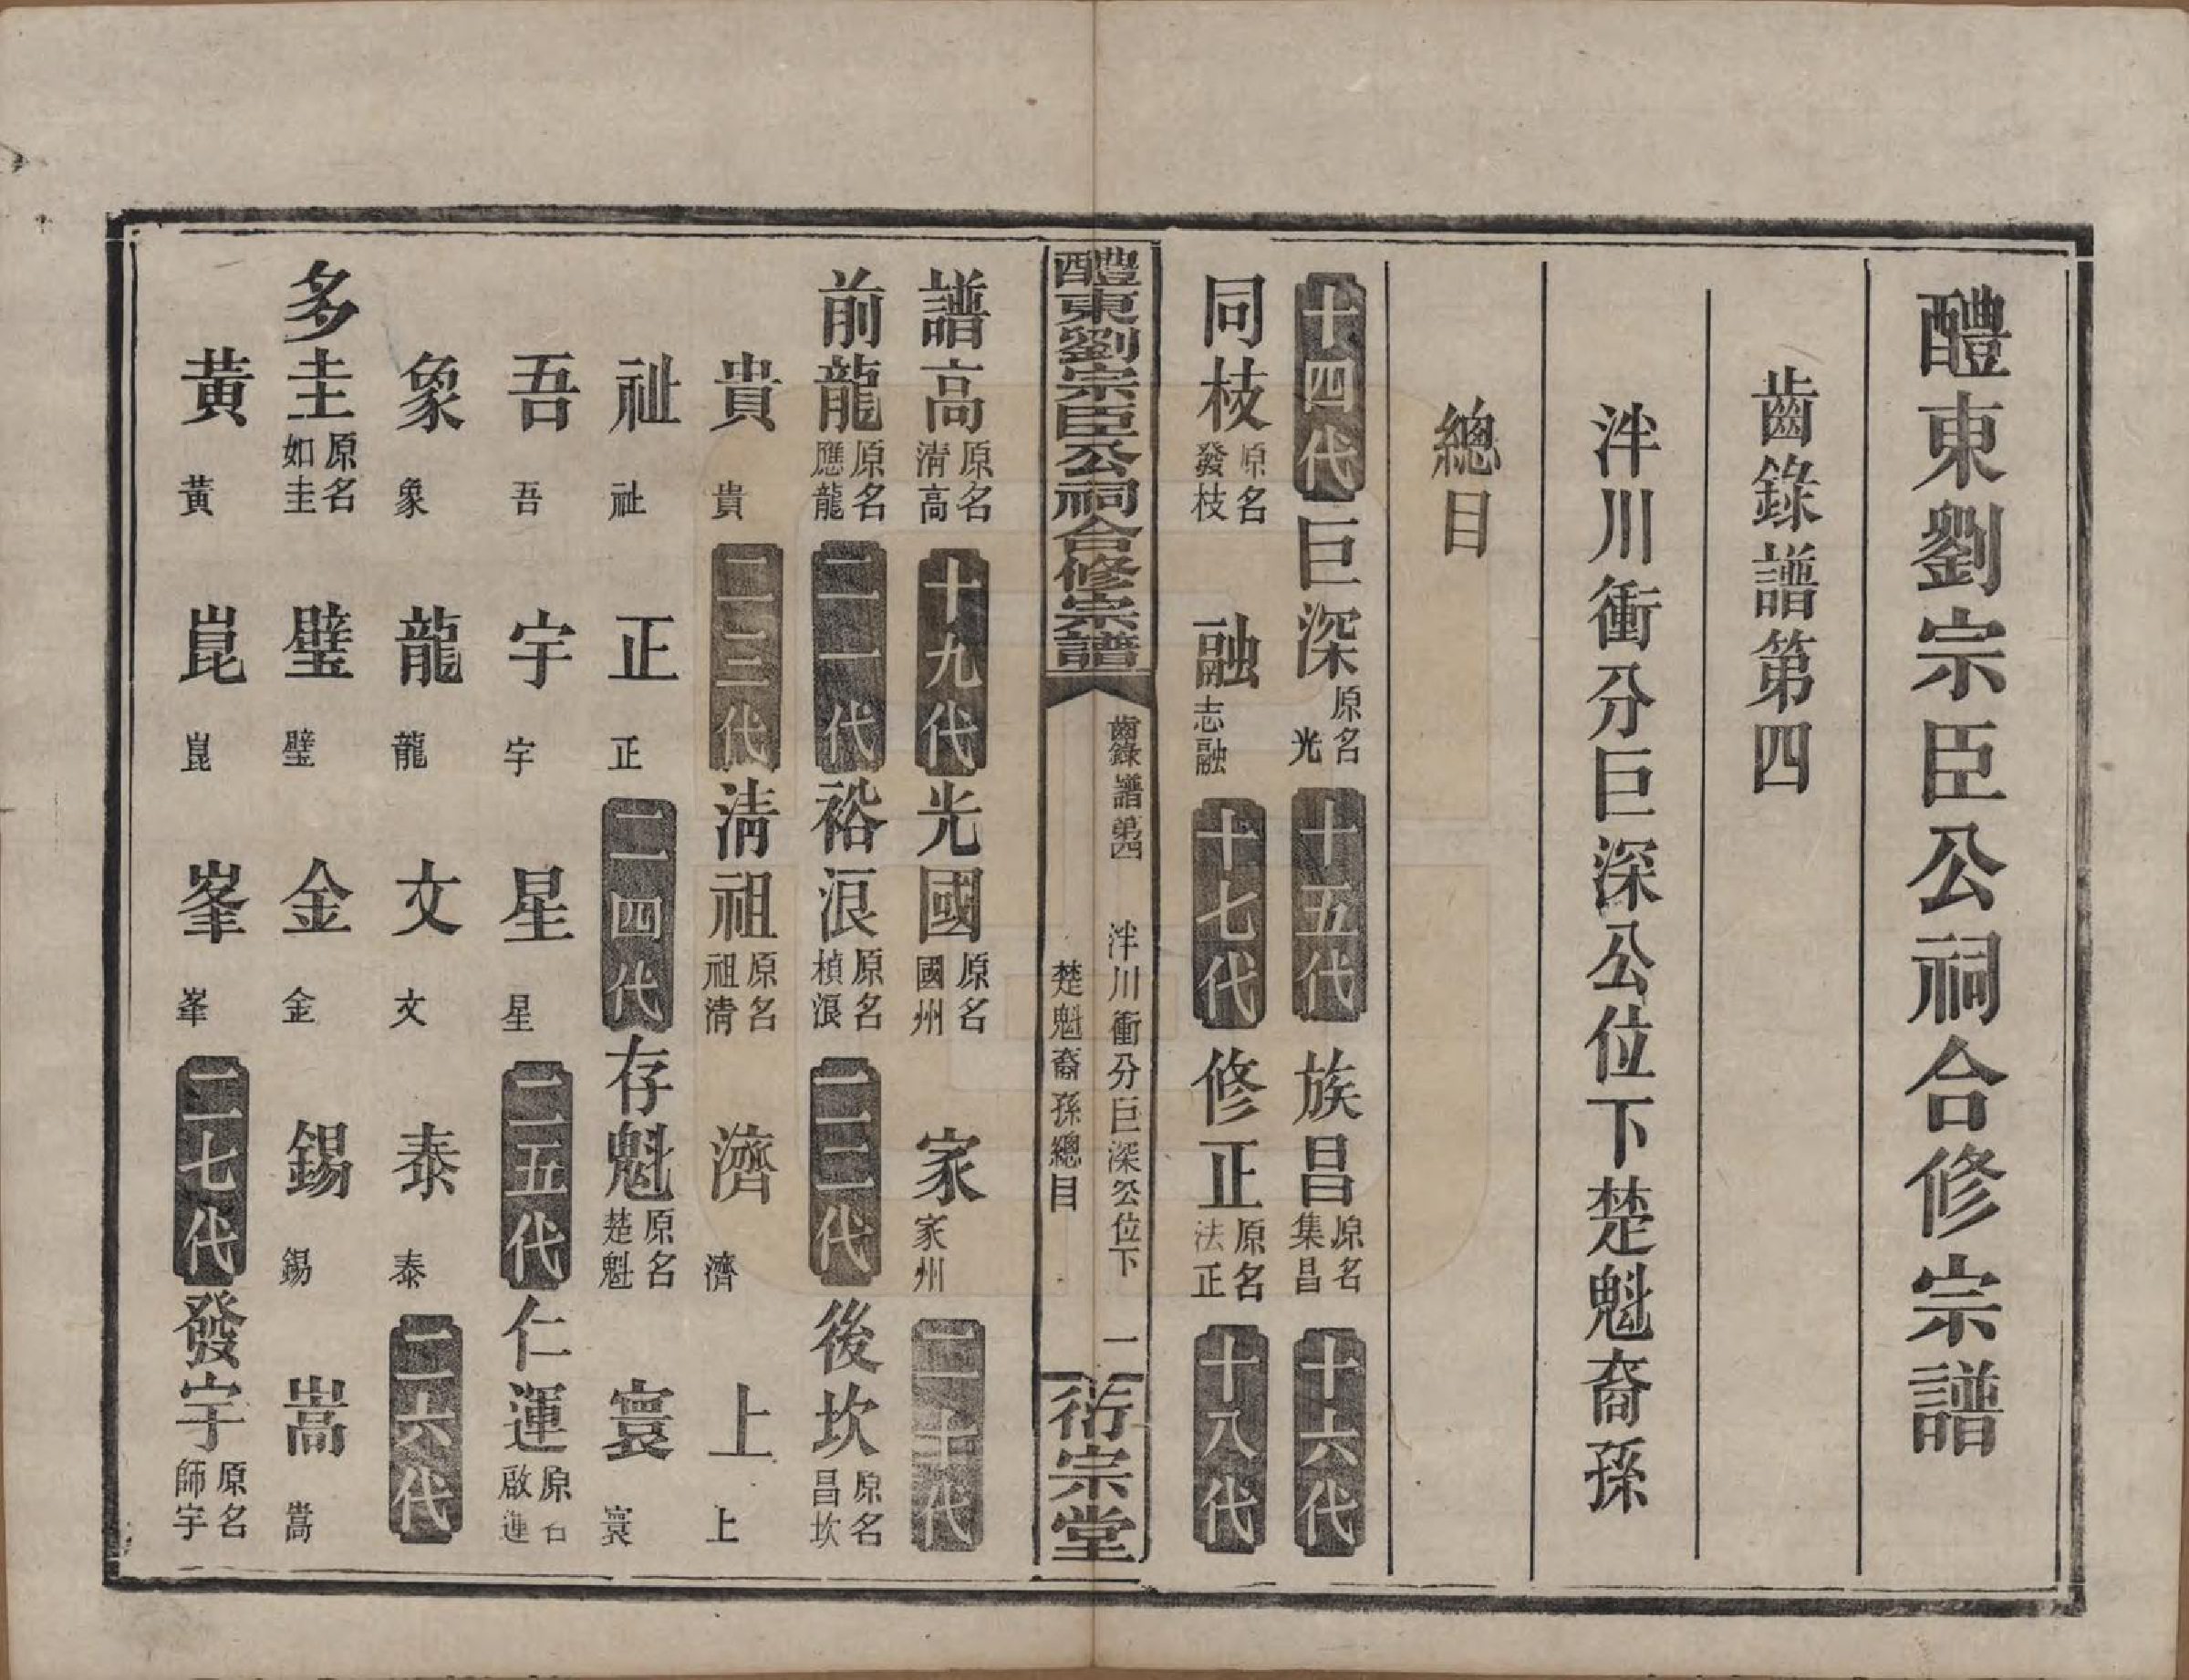 醴東劉宗臣公祠合修宗譜
齒錄譜第四
泮川衝分巨深公位下楚魁裔孫
總目
十四代 巨深 原名光 十五代 族昌 原名集昌 十六代
同枝 原名發枝 融 志融 十七代 修正 原名法正 十八代
醴東劉宗臣公祠合修宗譜 齒錄譜第四 泮川衝分巨深公位下 楚魁裔孫總目 一 衍宗堂
譜高 原名清高 十九代 光國 原名國州 家 家州 二十代
前龍 原名應龍 二一代 裕浪 原名楨浪 二二代 後坎 原名昌坎
貴 貴 二三代 清祖 原名祖清 濟 濟 上 上
祉 祉 正 正 二四代 存魁 原名楚魁 寰 寰
吾 吾 宇 宇 星 星 二五代 仁運 原名啟運
象 象 龍 龍 文 文 泰 泰 二六代
多圭 原名如圭 璧 璧 金 金 錫 錫 嵩 嵩
黃 黃 崑 崑 峯 峯 二七代 發宇 原名師宇